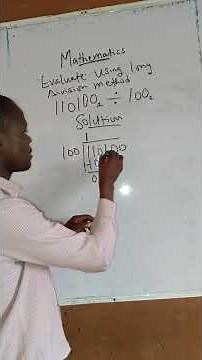 Mathematics
Evaluate using long
division method
110100₂ ÷ 100₂
Solution
1
100 110100
10
0